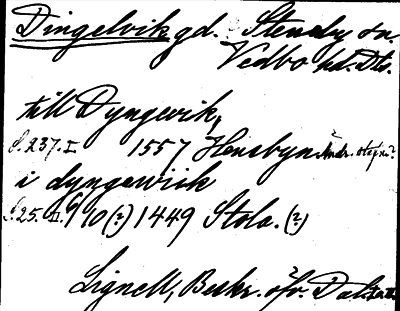 Dingelvik gd. Steneby sn.
Vedbo hd. Dls.
till Dyngevik,
S. 237. I. 1557 Henebyn
i dyngewiik
S. 25. II. 9/10 (?) 1449 Stola. (?)
Lignell, Beskr. öfv. Dalsland